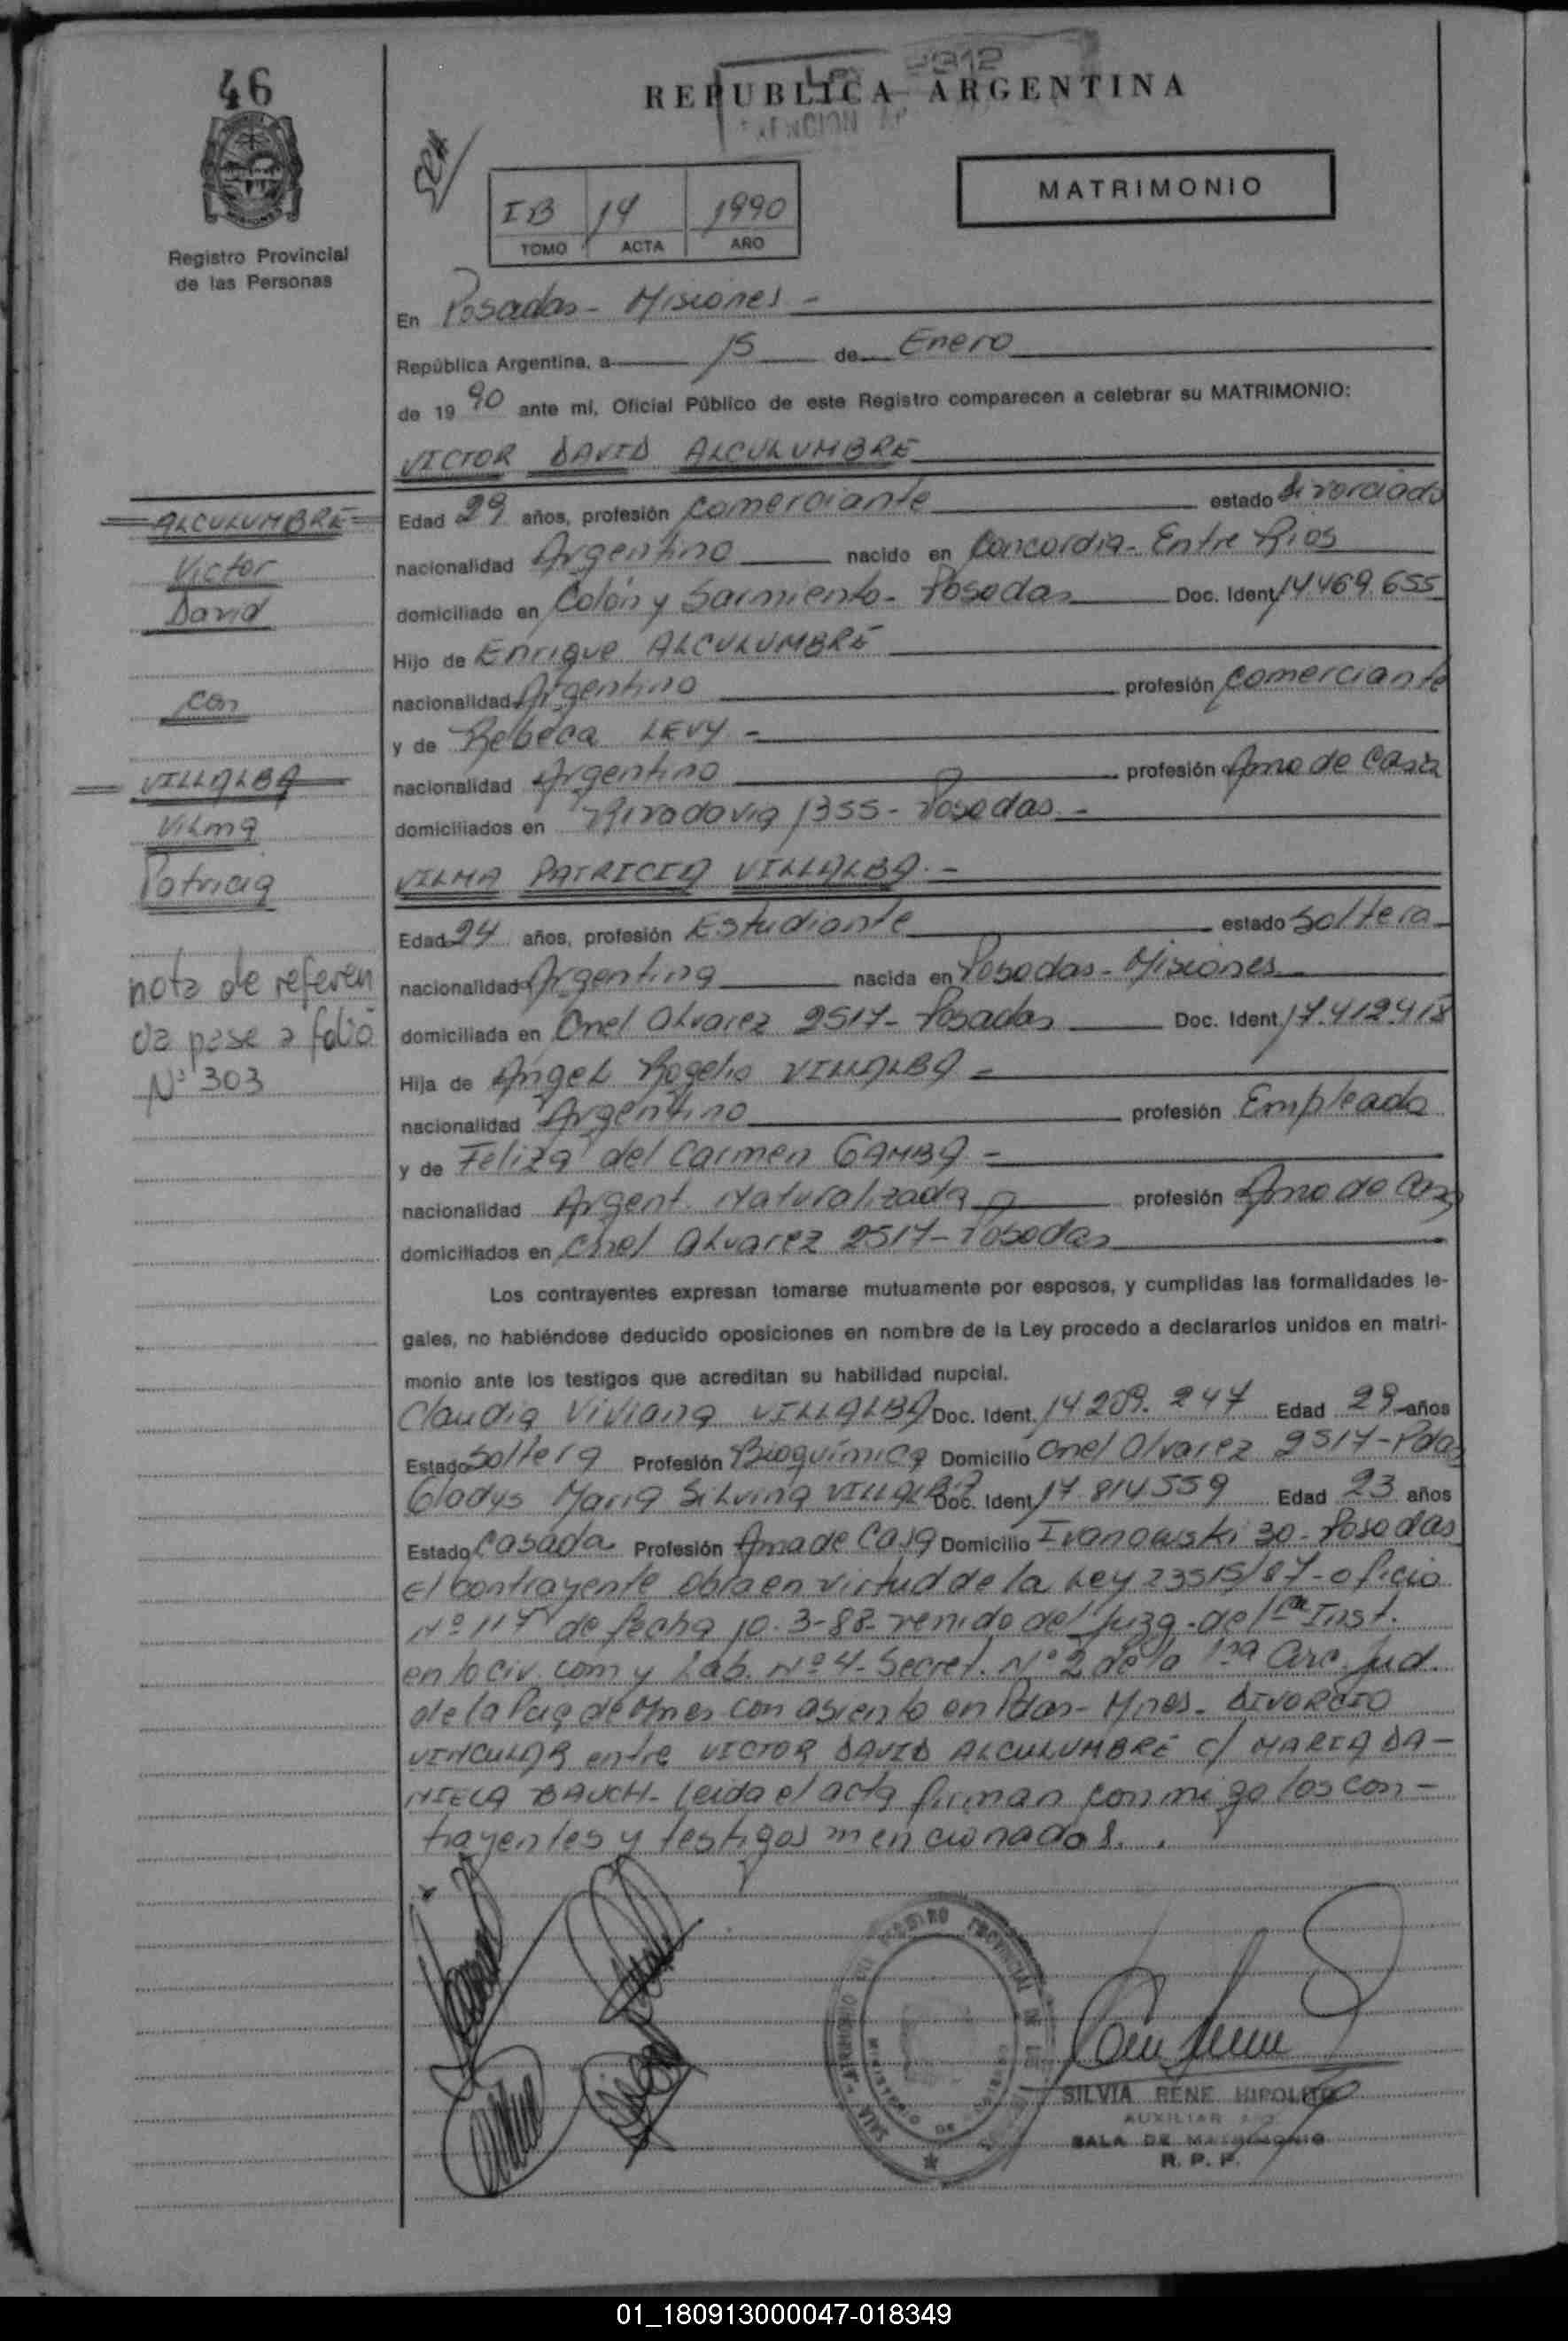 46
Registro Provincial
de las Personas
2912
REPUBLICA ARGENTINA
MATRIMONIO
IB 14 1990
TOMO ACTA AÑO
En Posadas - Misiones -
República Argentina, a 15 de Enero
de 1990 ante mí, Oficial Público de este Registro comparecen a celebrar su MATRIMONIO:
VICTOR DAVID ALCULUMBRE
Edad 29 años, profesión comerciante estado divorciado
nacionalidad Argentino nacido en Concordia - Entre Rios
domiciliado en Colón y Sarmiento - Posadas Doc. Ident. 14469.655
Hijo de Enrique ALCULUMBRE
nacionalidad Argentino profesión comerciante
y de Rebeca LEVY -
nacionalidad Argentino profesión Ama de Casa
domiciliados en Rivadavia 1355 - Posadas. -
VILMA PATRICIA VILLALBA. -
Edad 24 años, profesión Estudiante estado Soltera
nacionalidad Argentina nacida en Posadas - Misiones
domiciliada en Cnel Alvarez 2517 - Posadas Doc. Ident. 17.412.418
Hija de Angel Rogelio VILLALBA -
nacionalidad Argentino profesión Empleado
y de Feliza del Carmen GAMBA -
nacionalidad Argent. Naturalizada profesión Ama de Casa
domiciliados en Cnel Alvarez 2517 - Posadas
Los contrayentes expresan tomarse mutuamente por esposos, y cumplidas las formalidades le-
gales, no habiéndose deducido oposiciones en nombre de la Ley procedo a declararlos unidos en matri-
monio ante los testigos que acreditan su habilidad nupcial.
Claudia Viviana VILLALBA Doc. Ident. 14.209.247 Edad 29 años
Estado Soltera Profesión Bioquímica Domicilio Cnel Alvarez 2517 - Pdas
Gladys Maria Silvina VILLALBA Doc. Ident. 17.814.559 Edad 23 años
Estado Casada Profesión Ama de Casa Domicilio Ivanowski 30 - Posadas
El contrayente obra en virtud de la Ley 23515/87 - oficio
Nº 117 de fecha 10-3-88 - venido del Juzg. de 1ra Inst.
en lo civ. com y Lab. Nº 4 - Secret. Nº 2 de la 1ra Circ. Jud.
de la Pcia de Mnes con asiento en Pdas - Mnes - DIVORCIO
VINCULAR entre VICTOR DAVID ALCULUMBRE c/ MARIA DA-
NIELA BAUCH - Leida el acta firman conmigo los con-
trayentes y testigos mencionados. .
ALCULUMBRE
Victor
David
con
VILLALBA
Vilma
Patricia
nota de referen
cia pase a folio
Nº 303
SILVIA RENE HIPOLITO
AUXILIAR
SALA DE MATRIMONIO
R. P. P.
01_180913000047-018349